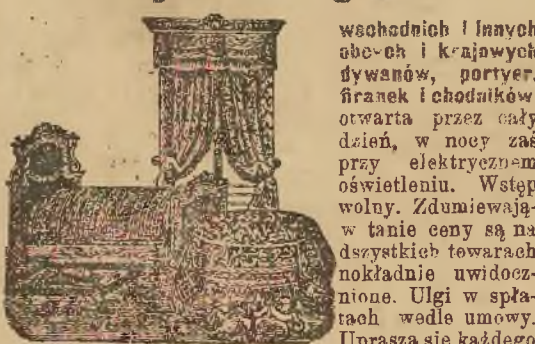 wschodnich i innych
obcych i krajowych
dywanów, portyer,
firanek i chodników
otwarta przez cały
dzień, w nocy zaś
przy elektrycznem
oświetleniu. Wstęp
wolny. Zdumiewają-
w tanie ceny są na
dszystkich towarach
nokładnie uwidocz-
nione. Ulgi w spła-
tach wedle umowy.
Uprasza się każdego